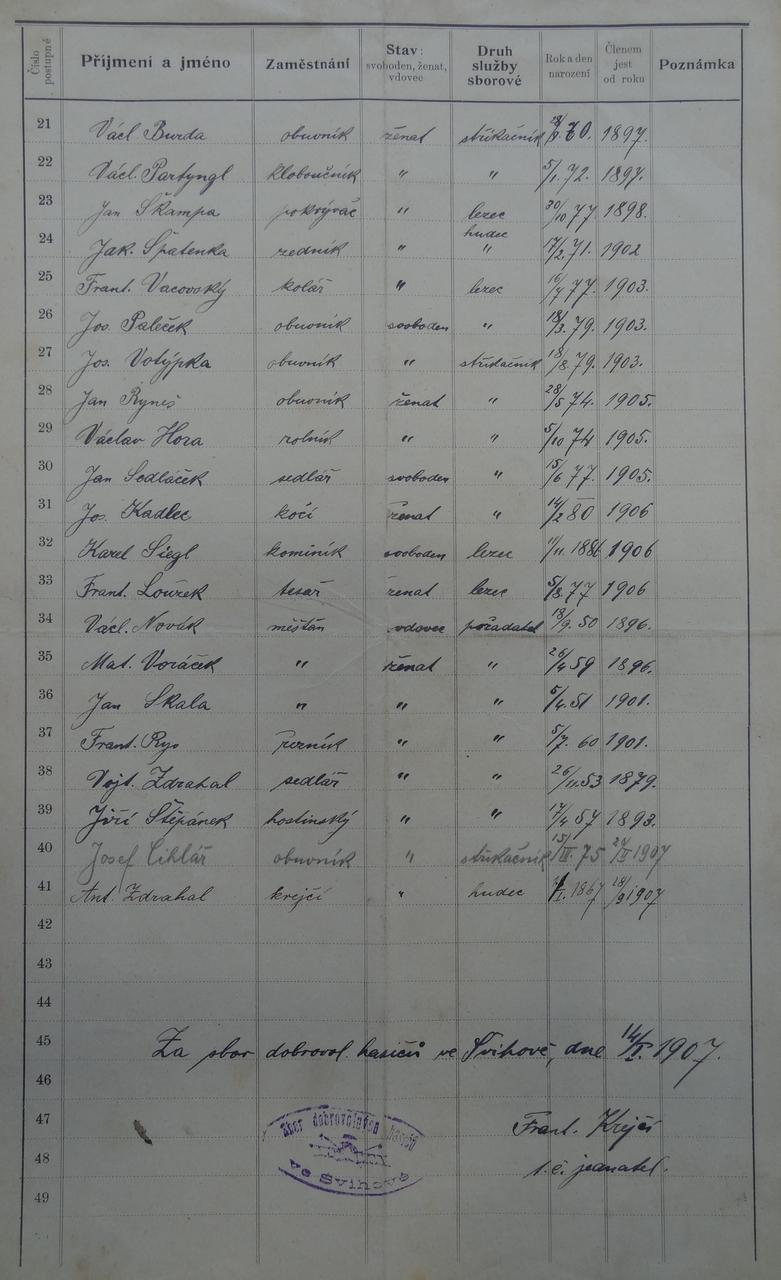 Číslo postupné Příjmení a jméno Zaměstnání Stav: svoboden, ženat, vdovec Druh služby sborové Rok a den narození Členem jest od roku Poznámka
21 Václ. Burda obuvník ženat stříkačník 28/9. 70. 1897.
22 Václ. Partyngl kloboučník " " 5/1. 72. 1897.
23 Jan Škampa pokrývač " lezec 30/10 77 1898.
24 Jak. Špatenka zedník " hudec " 17/2. 71. 1902
25 Frant. Vacovský kolář " lezec 16/7 77. 1903.
26 Jos. Paleček obuvník svoboden " 18/3. 79. 1903.
27 Jos. Votýpka obuvník " stříkačník 18/8. 79. 1903.
28 Jan Ryneš obuvník ženat " 28/5 74. 1905.
29 Václav Hora rolník " " 5/10 74 1905.
30 Jan Sedláček sedlář svoboden " 15/6 77. 1905.
31 Jos. Kadlec kočí ženat " 14/2 80 1906
32 Karel Siegl kominík svoboden lezec 11/11. 1886 1906
33 Frant. Louřek tesař ženat lezec 5/8. 77 1906
34 Václ. Novák měšťan vdovec pořadatel 18/9. 50 1896.
35 Mat. Voráček " ženat " 26/4 59 1896.
36 Jan Skala " " " 5/4. 51 1901.
37 Frant. Rys řezník " " 5/7. 60 1901.
38 Vojt. Zdrahal sedlář " " 26/11. 53 1879.
39 Jiří Štěpánek hostinský " " 17/4 57 1893.
40 Josef Ciklář obuvník " stříkačník 15/III. 75 24/II 1907
41 Ant. Zdrahal krejčí " hudec 1/I. 1867 18/9 1907
42
43
44
45 Za sbor dobrovol. hasičů ve Švihově, dne 14/I. 1907.
46
47 Sbor dobrovolných hasičů Frant. Krejčí
48 ve Švihově t. č. jednatel.
49